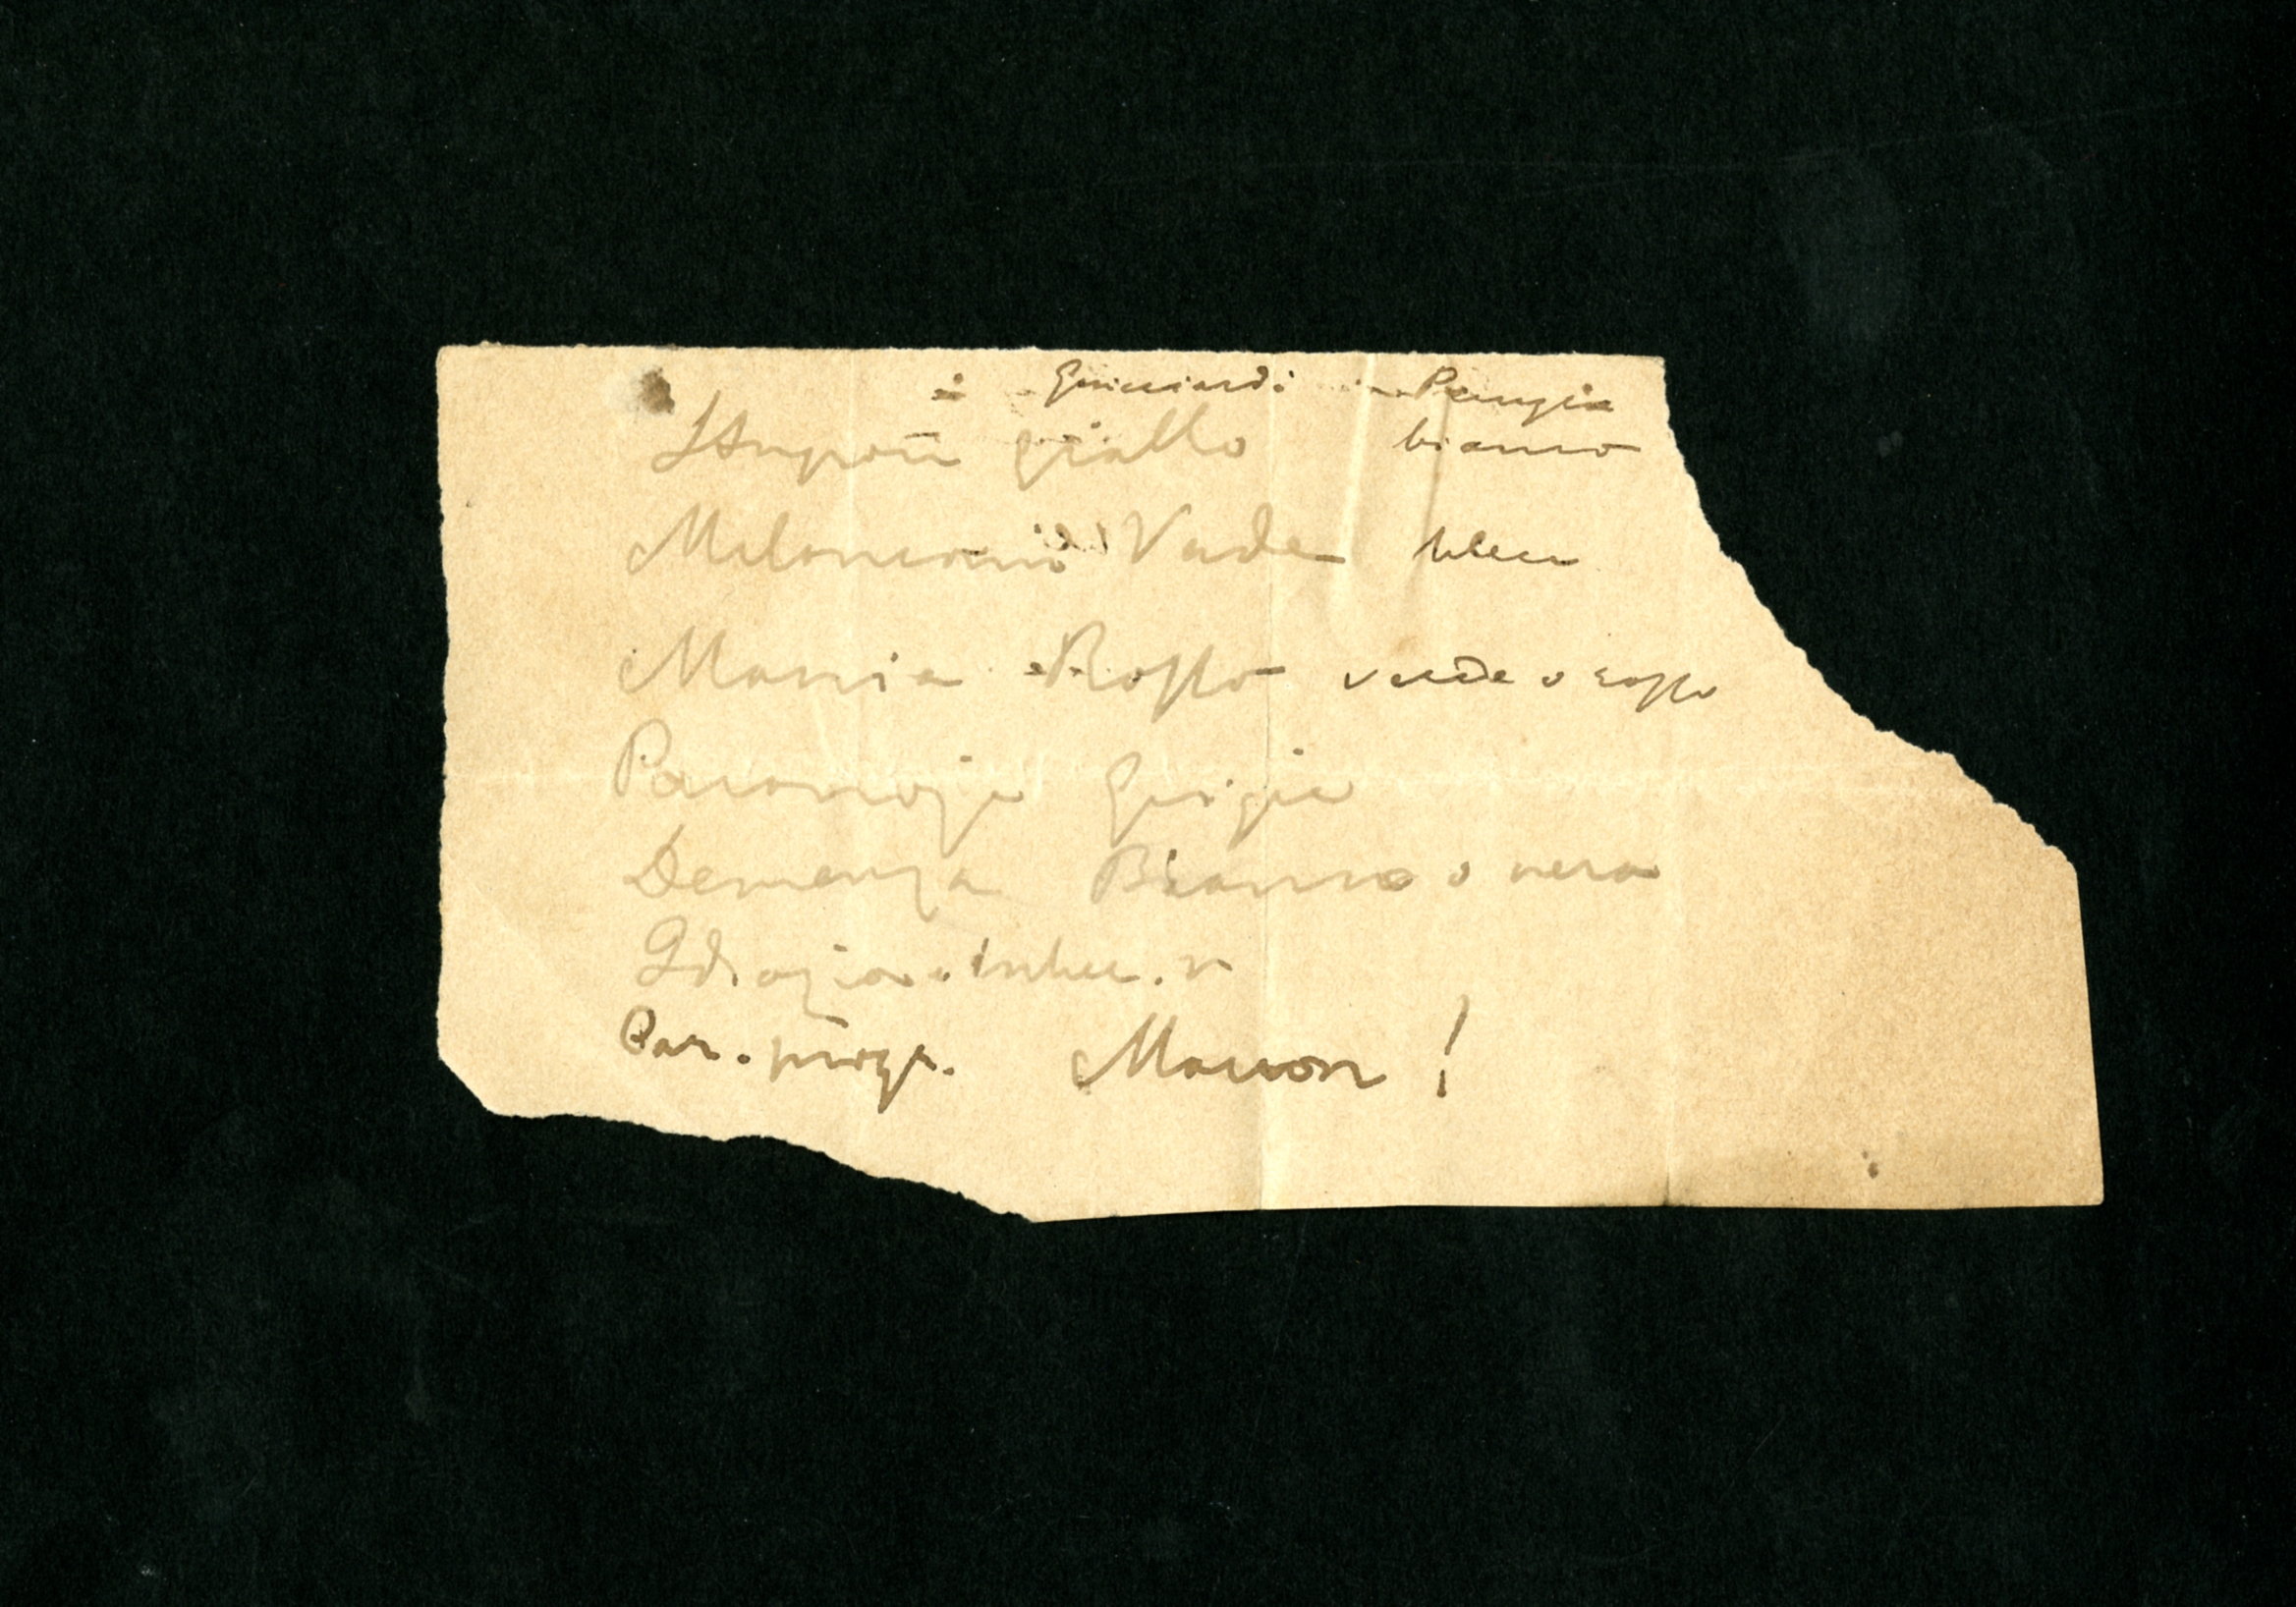 Guicciardi Perugia
Stupori giallo bianco
Melanconia Verde bleu
Mania Rosso verde o rosso
Paranoja Grigia
Demenza Bianca o nera
Idiozia
Par. progr. Marron !